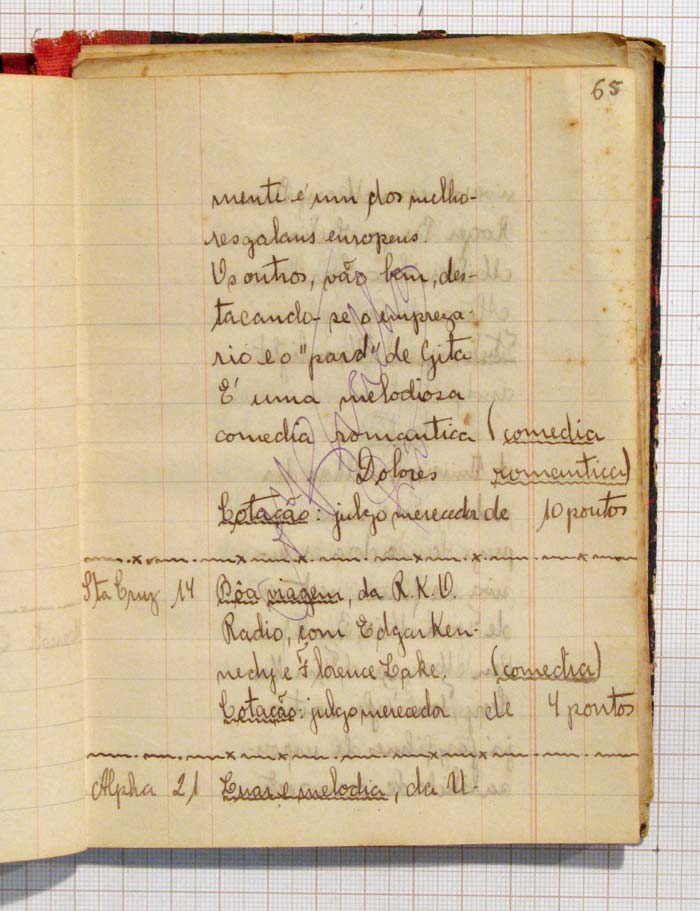 65
mente é um dos melho-
res galans europeus.
Os outros, vão bem, des-
tacando-se o empreza-
rio e o "pard" de Gita
É uma melodiosa
comedia romantica (comedia
Dolores romantica)
Cotação: julgo merecedor de 10 pontos
Sta Cruz 14 Bôa viagem, da R.K.O.
Radio, com Edgar Ken-
nedy e Florence Lake. (comedia)
Cotação: julgo merecedor de 4 pontos
Alpha 21 Luar e melodia, da U-